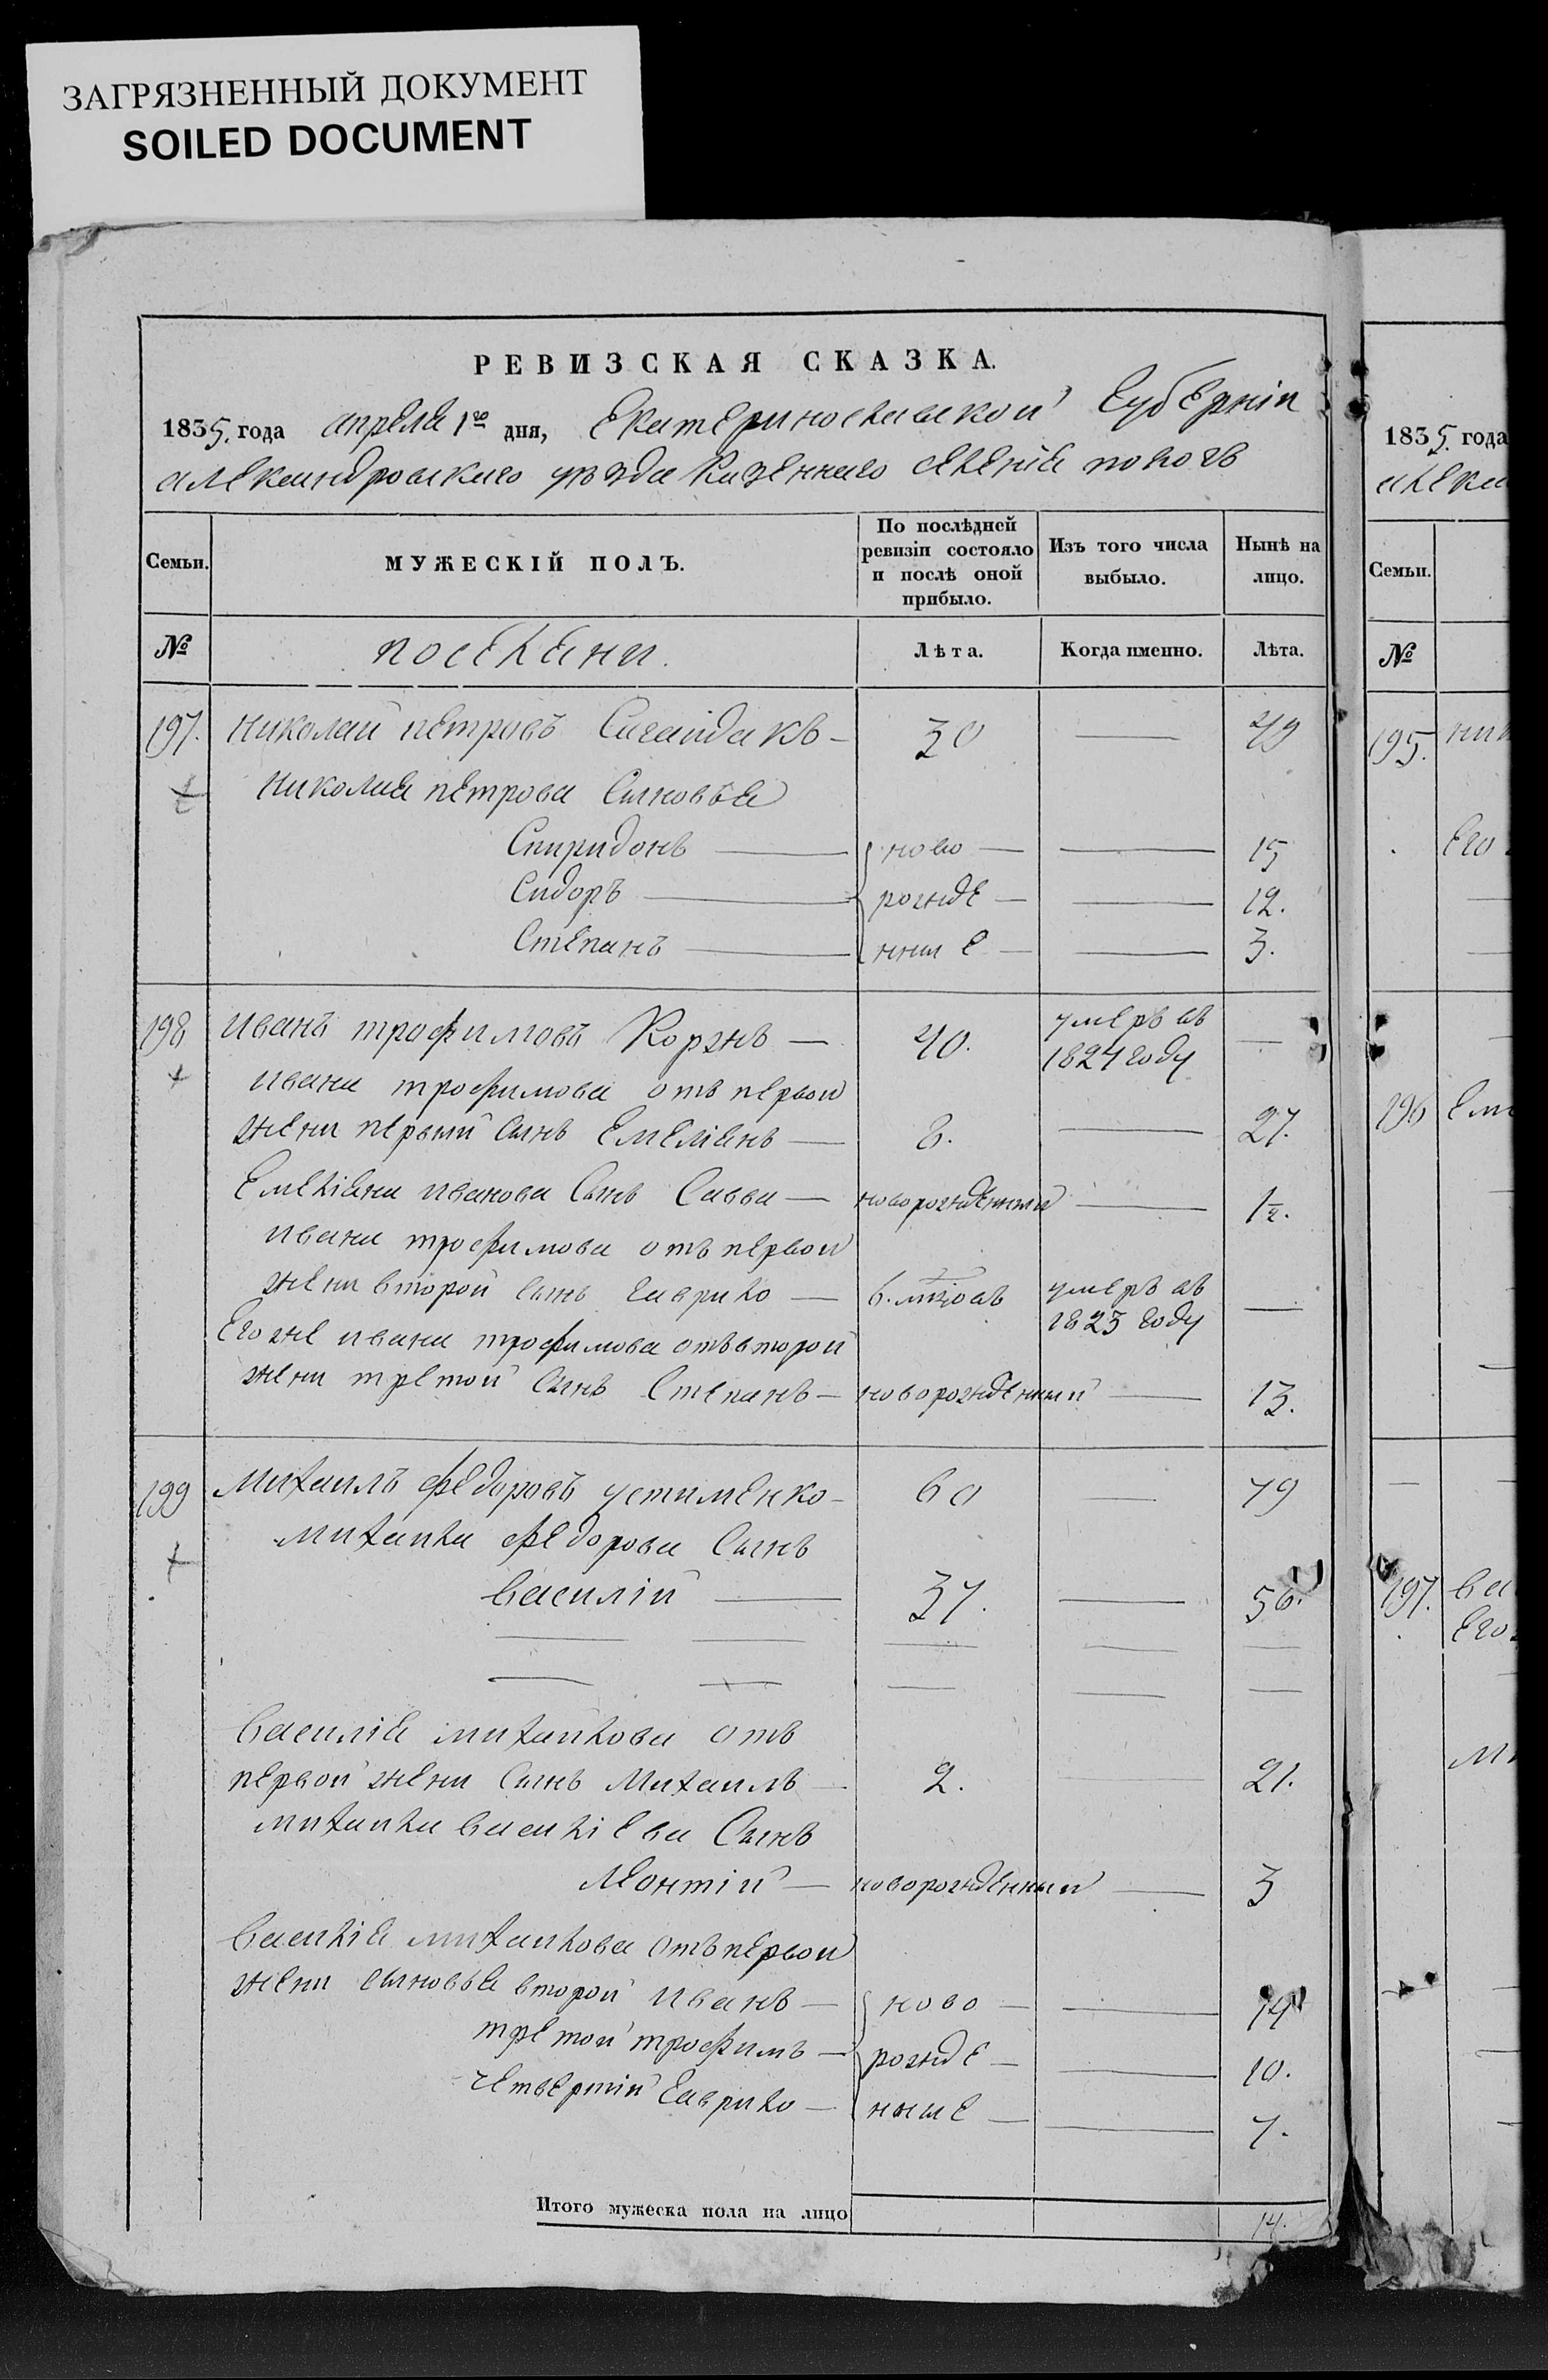 ЗАГРЯЗНЕННЫЙ ДОКУМЕНТ
SOILED DOCUMENT
РЕВИЗСКАЯ СКАЗКА.
1835. года апреля 1го дня, Екатеринославской Губерніи
александровскаго уѣзда Казеннаго селенія пологъ
Семьи.
МУЖЕСКІЙ ПОЛЪ.
По послѣдней ревизіи состояло и послѣ оной прибыло.
Изъ того числа выбыло.
Нынѣ на лицо.
№
поселяни.
Лѣта.
Когда именно.
Лѣта.
197. николай петровъ Сагайдакъ — 30 — 49
николая петрова Сыновья
Спиридонъ — ново — — 15
Сидоръ — рожде — — 12.
Степанъ — нные — — 3.
198 иванъ трофимовъ Коржъ — 40. умеръ въ 1824 году —
ивана трофимова отъ первой
жени первый сынъ Емеліянъ — 8. — 27.
Емеліяна иванова Сынъ Савва — новорожденный — 1/2.
ивана трофимова отъ первой
жени второй сынъ гаврило — 6. мцовъ умеръ въ 1823 году —
Его же ивана трофимова отъ второй
жени третой сынъ степанъ — новорожденный — 13.
199 михаилъ федоровъ устименко — 60 — 79
михаила федорова Сынъ
василій — 37. — 56.
василія михайлова отъ
первой жени Сынъ Михаилъ — 2. — 21.
михаила васильева Сынъ
Леонтій — новорожденный — 3
василія михайлова отъ первой
жени сыновья второй иванъ — ново — — 14
третой трофимъ — рожде — — 10.
четвертій гаврило — ныше — — 7.
Итого мужеска пола на лицо 14.
1835. года
алекса
Семьи.
№
195. ник
Его
196 Ем
197. ва
Его